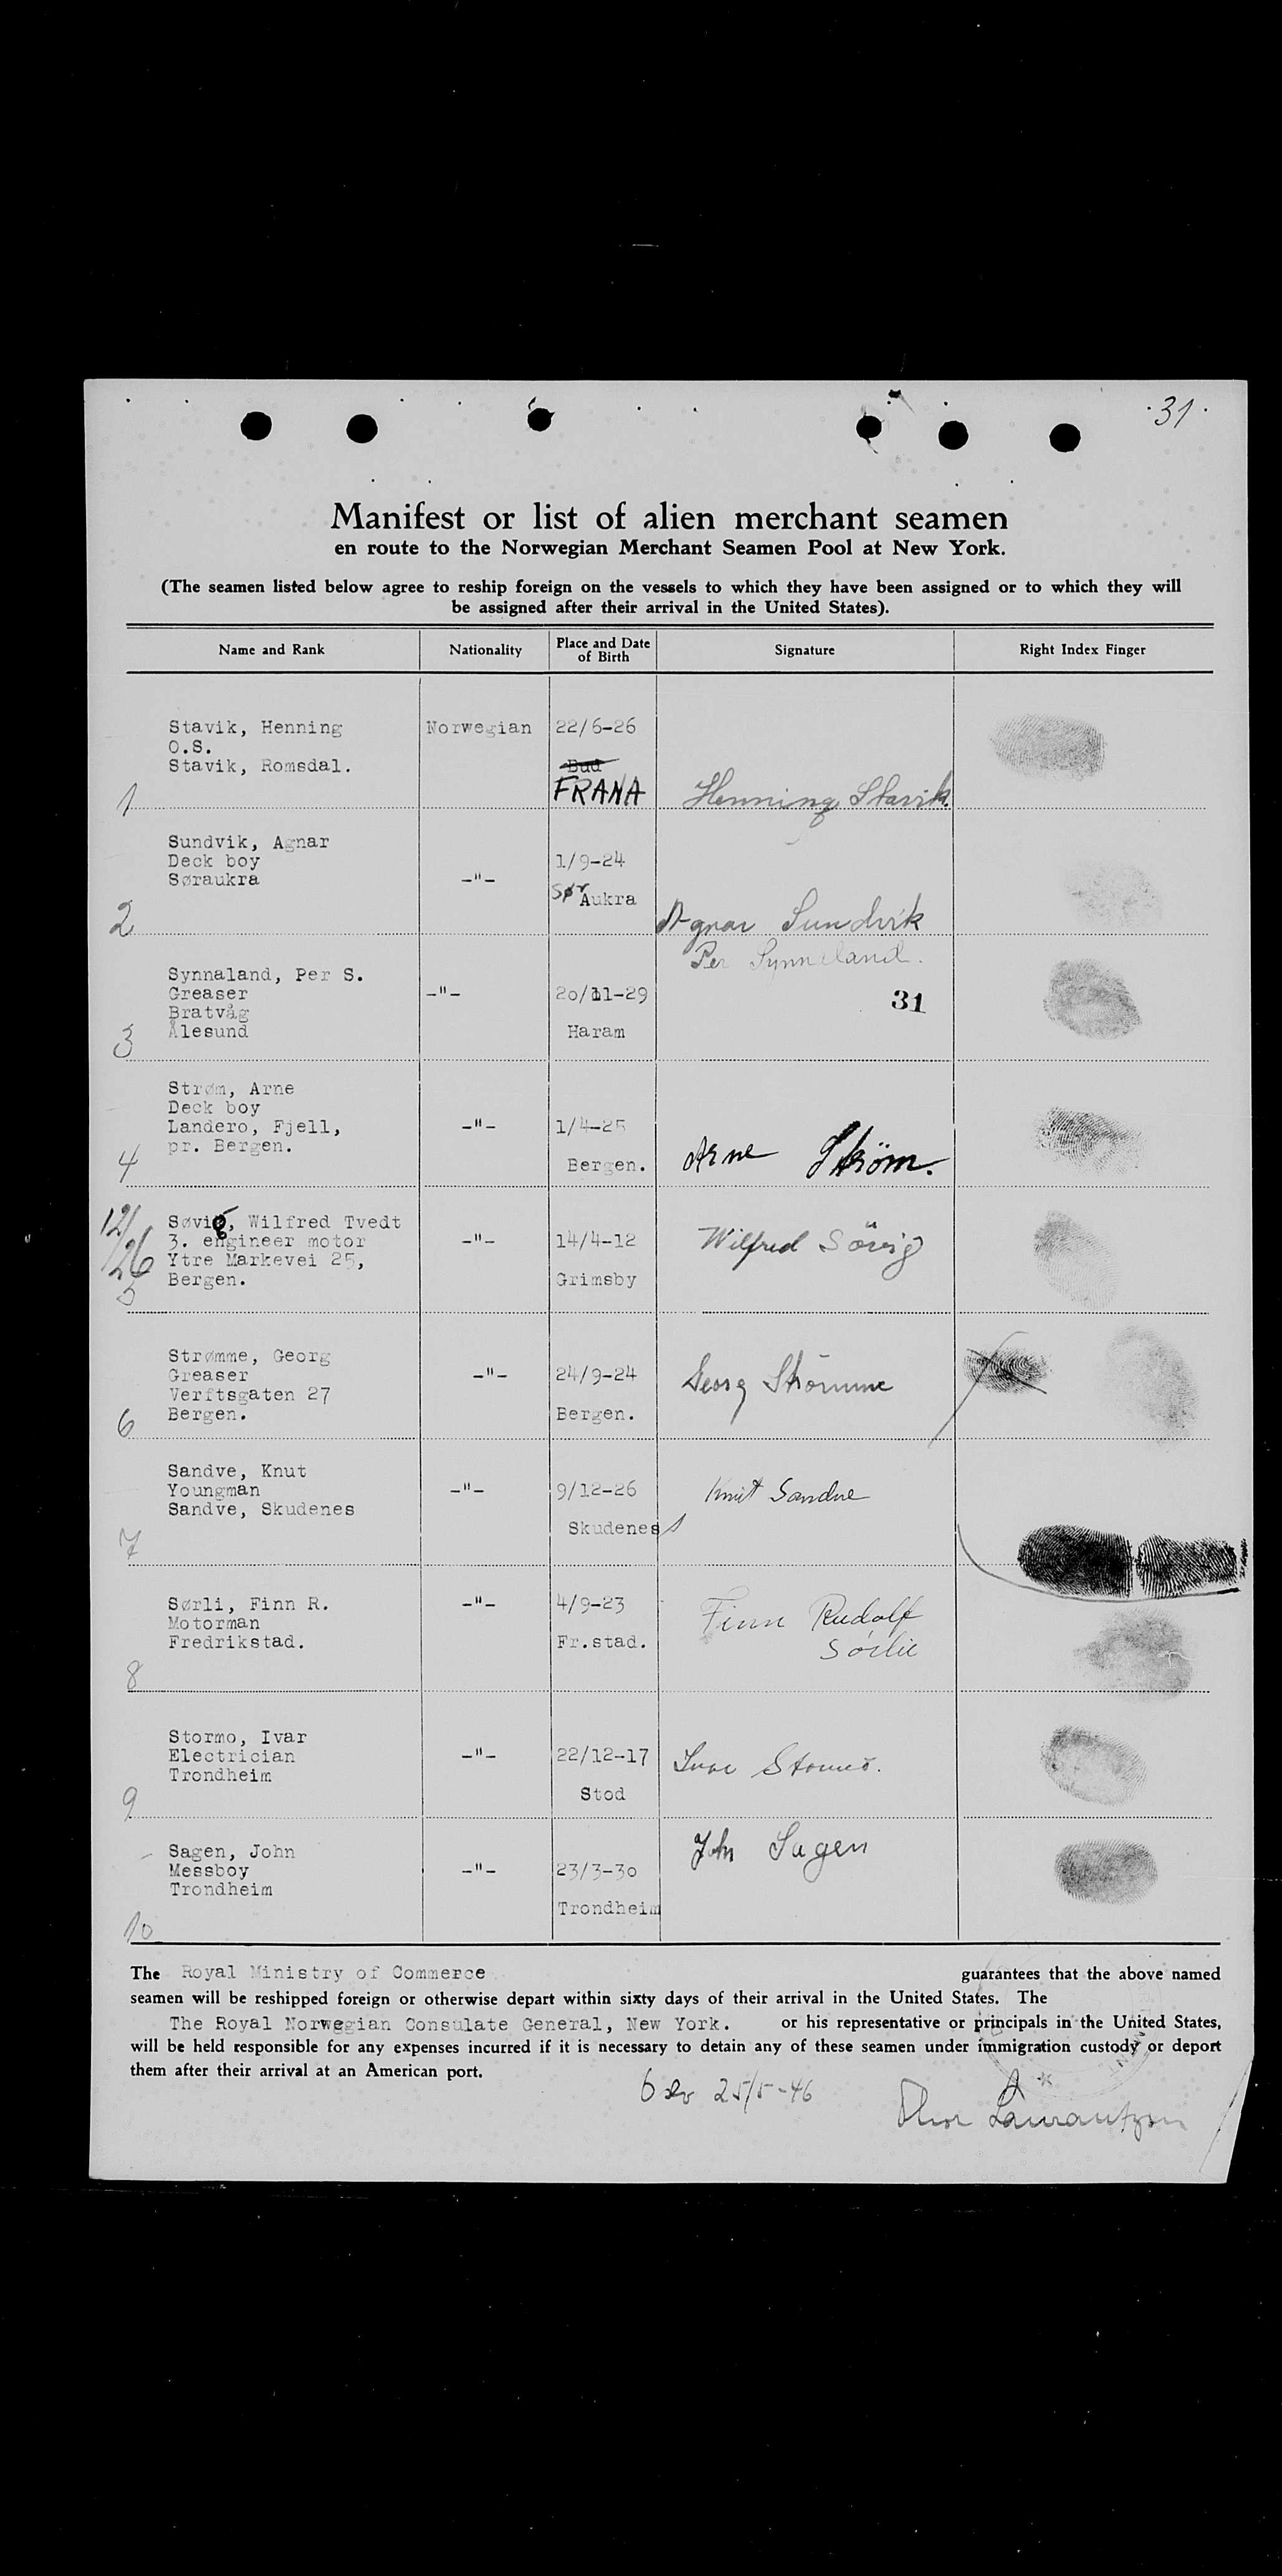 31
Manifest or list of alien merchant seamen
en route to the Norwegian Merchant Seamen Pool at New York.
(The seamen listed below agree to reship foreign on the vessels to which they have been assigned or to which they will
be assigned after their arrival in the United States).
Name and Rank Nationality Place and Date of Birth Signature Right Index Finger
Stavik, Henning Norwegian 22/6-26
O.S.
Stavik, Romsdal. Bud
1 FRANA Henning Stavik.
Sundvik, Agnar
Deck boy 1/9-24
Søraukra -"- Sør Aukra
2 Agnar Sundvik
Per Synneland.
Synnaland, Per S.
Greaser -"- 20/11-29 31
Bratvåg
3 Ålesund Haram
Strøm, Arne
Deck boy
Landero, Fjell, -"- 1/4-25
4 pr. Bergen. Bergen. Arne Ström.
12/ Søvig, Wilfred Tvedt
26 3. engineer motor -"- 14/4-12 Wilfred Sövig
Ytre Markevei 25,
5 Bergen. Grimsby
Strømme, Georg
Greaser -"- 24/9-24 Georg Strömme
Verftsgaten 27
6 Bergen. Bergen.
Sandve, Knut
Youngman -"- 9/12-26 Knut Sandve
Sandve, Skudenes
7 Skudenes
Sørli, Finn R. -"- 4/9-23 Finn Rudolf
Motorman
Fredrikstad. Fr.stad. Sörlie
8
Stormo, Ivar
Electrician -"- 22/12-17 Ivar Stormo.
Trondheim
9 Stod
Sagen, John John Sagen
Messboy -"- 23/3-30
Trondheim
10 Trondheim
The Royal Ministry of Commerce guarantees that the above named
seamen will be reshipped foreign or otherwise depart within sixty days of their arrival in the United States. The
The Royal Norwegian Consulate General, New York. or his representative or principals in the United States,
will be held responsible for any expenses incurred if it is necessary to detain any of these seamen under immigration custody or deport
them after their arrival at an American port.
25/5-46